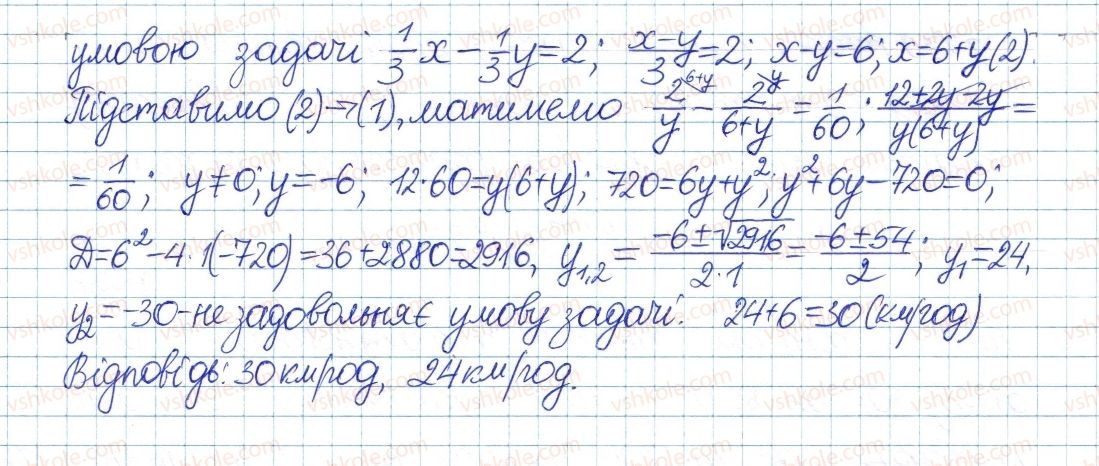 умовою задачі 1/3 x - 1/3 y = 2; (x-y)/3 = 2; x-y=6; x=6+y (2).
Підставимо (2)→(1), матимемо 2/y ^(6+y) - 2/(6+y) ^y = 1/60; (12+2y-2y)/(y(6+y)) =
= 1/60; y≠0; y=-6; 12·60=y(6+y); 720=6y+y²; y²+6y-720=0;
Д=6²-4·1(-720)=36+2880=2916, y₁,₂ = (-6±√2916)/(2·1) = (-6±54)/2; y₁=24,
y₂=-30-не задовольняє умову задачі. 24+6=30 (км/год)
Відповідь: 30 км/год, 24 км/год.
vshkole.com